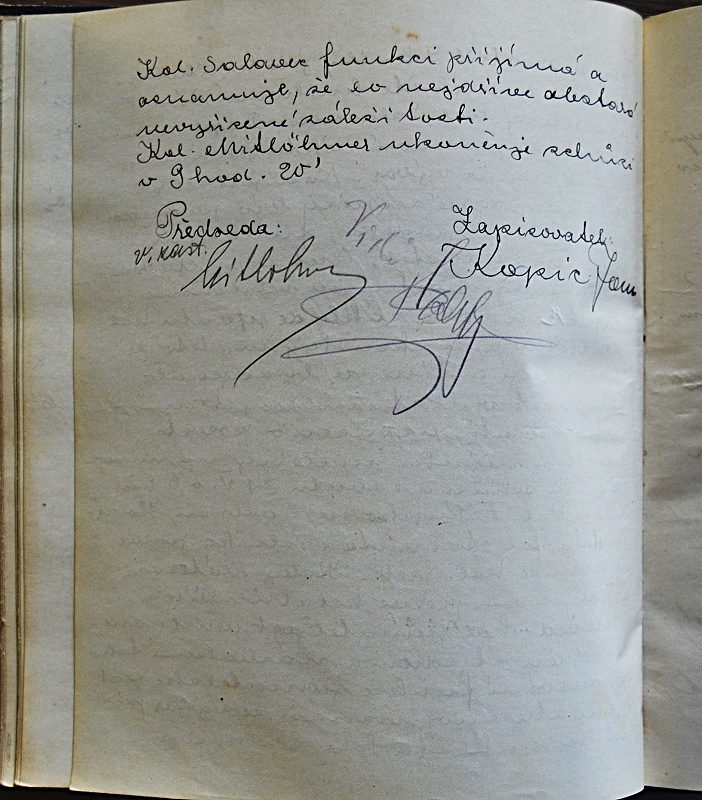 Kol. Salavec funkci přijímá a
oznamuje, že co nejdříve obstará
nevyřízené záležitosti.
Kol. Mitlöhner ukončuje schůzi
v 9 hod. 20'
Předseda: Zapisovatel:
v. zast. Mitlöhner Kopic Jan